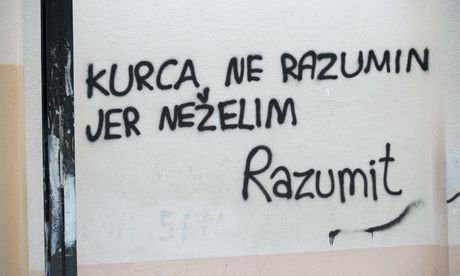 KURCA, NE RAZUMIN
JER NEŽELIM
Razumit